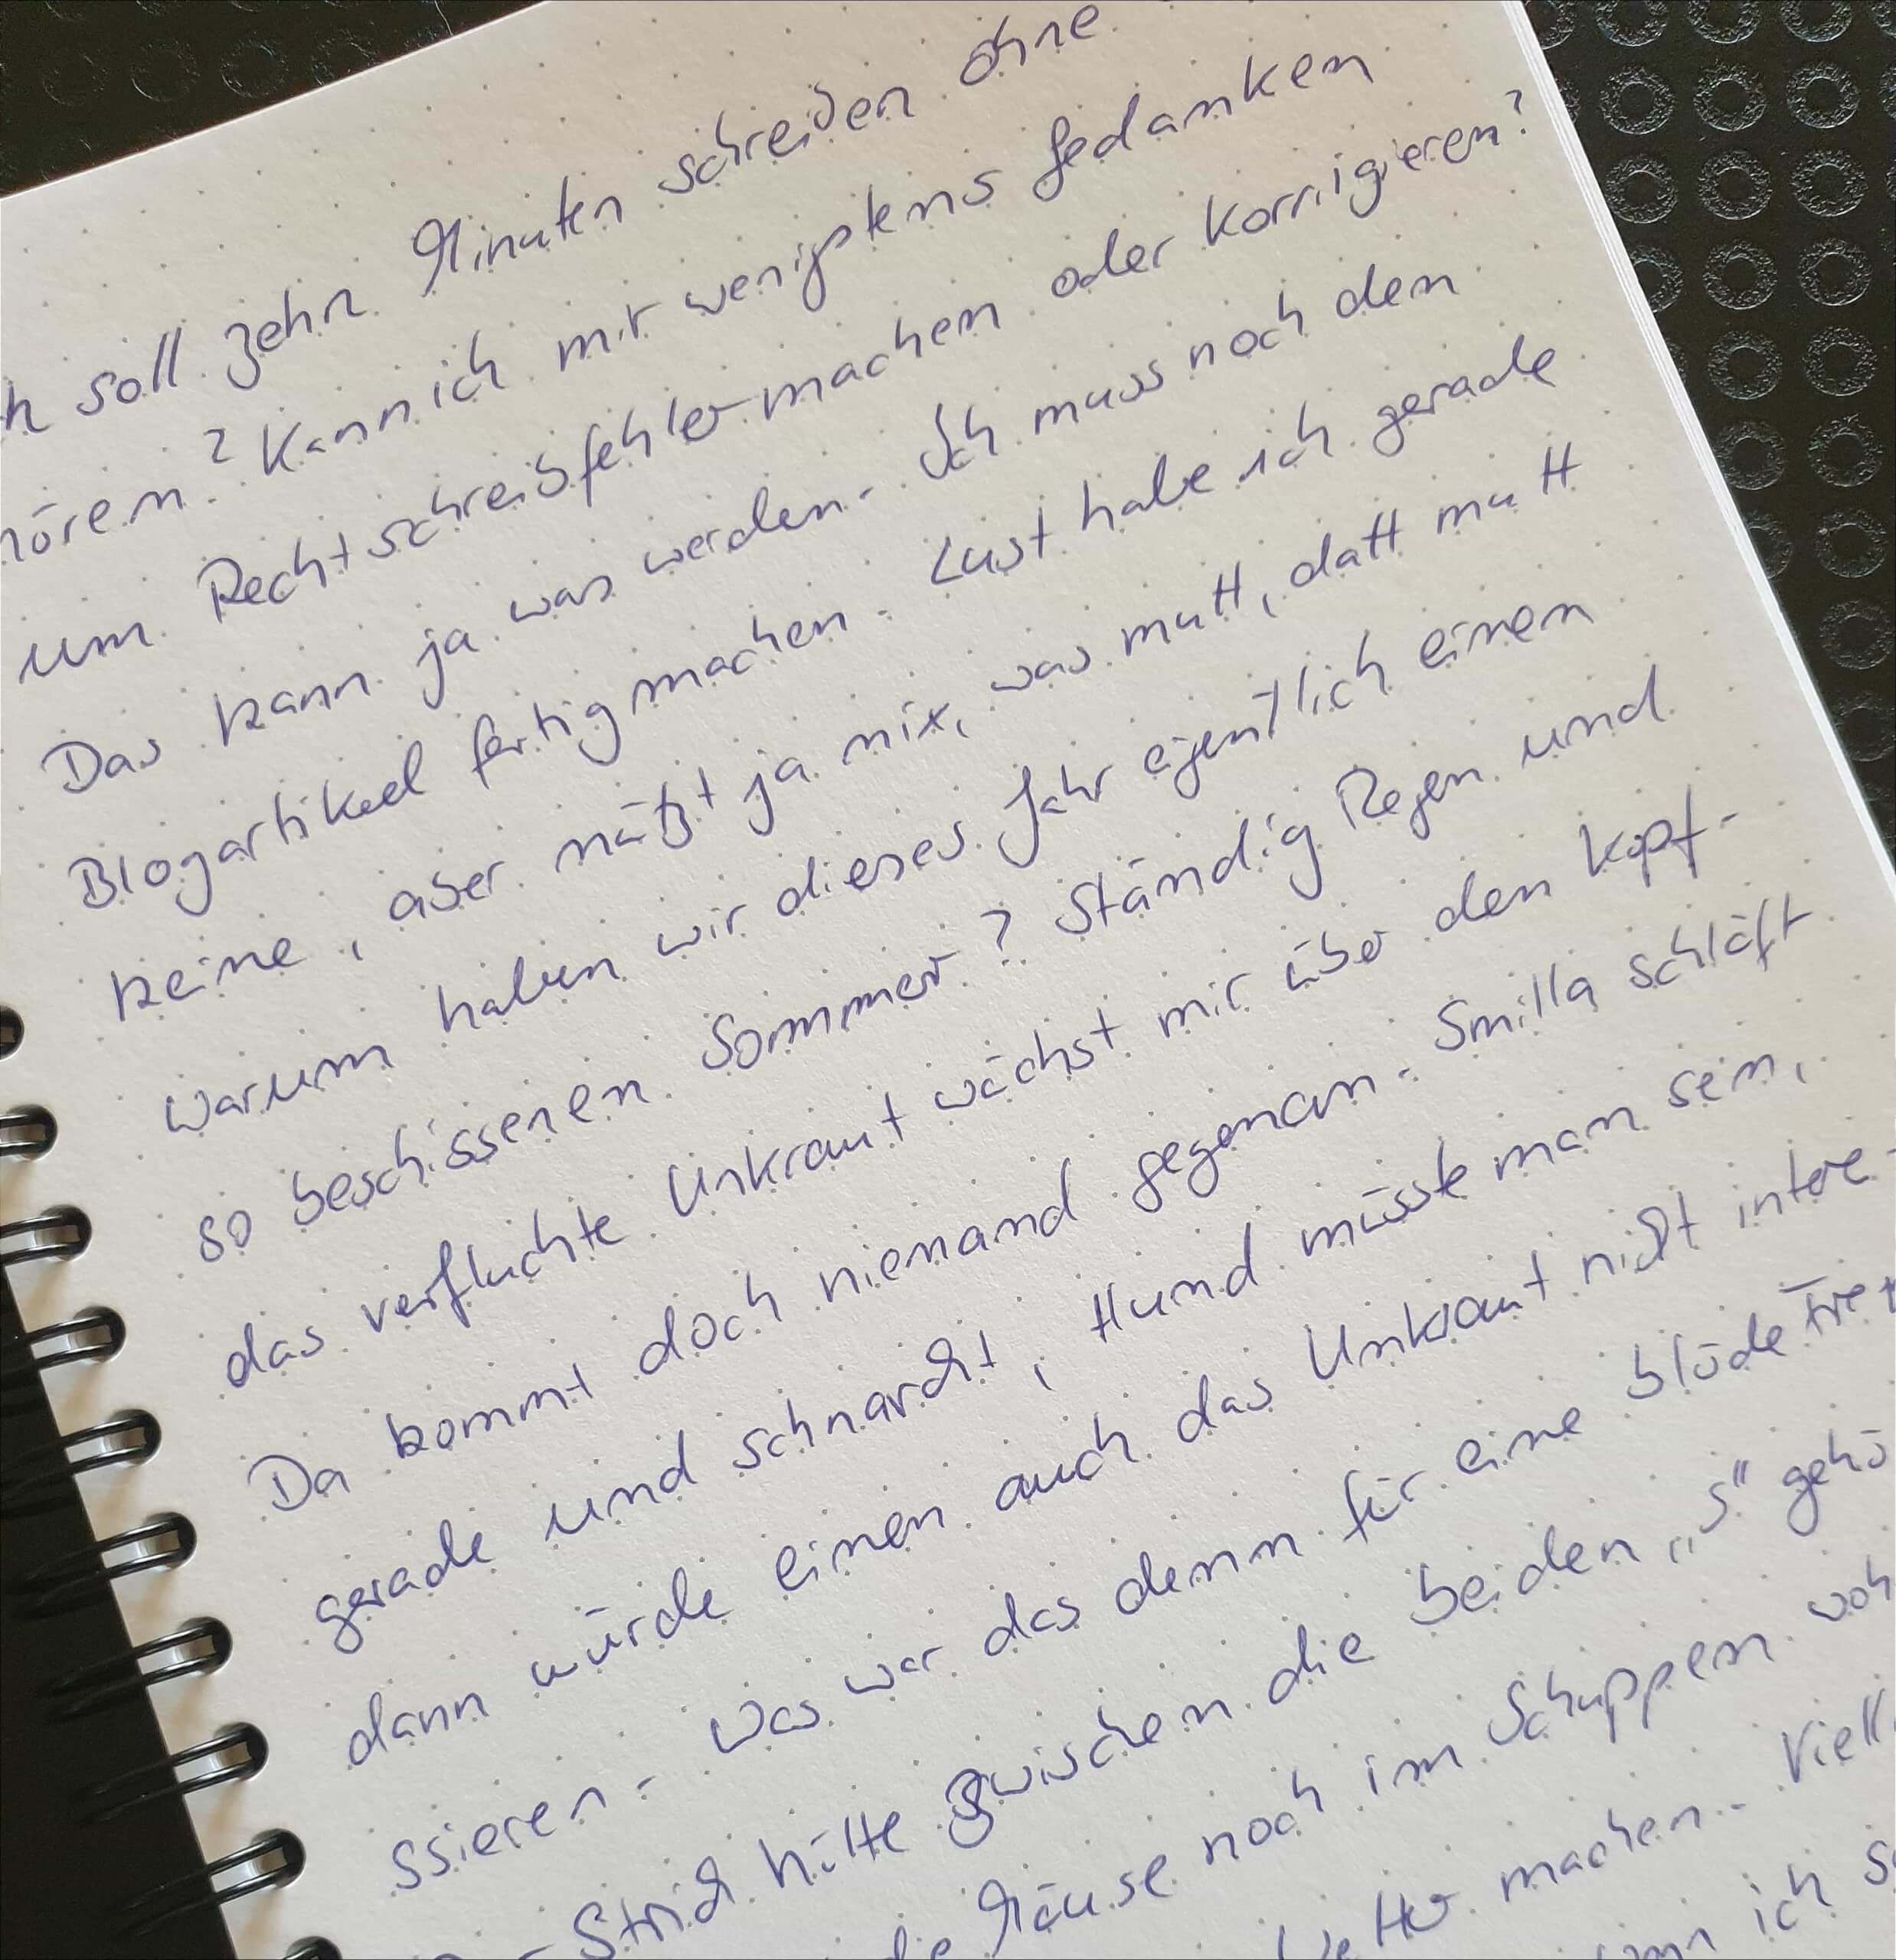 h soll zehn Minuten schreiben ohne
hören? Kann ich mir wenigstens Gedanken
um Rechtschreibfehler machen oder korrigieren?
Das kann ja was werden. Ich muss noch den
Blogartikel fertig machen. Lust habe ich gerade
keine, aber nützt ja nix, was mutt, datt mutt
Warum haben wir dieses Jahr eigentlich einen
so beschissenen Sommer? Ständig Regen und
das verfluchte Unkraut wächst mir über den Kopf.
Da kommt doch niemand gegenan. Smilla schläft
gerade und schnarcht, Hund müsste man sein,
dann würde einen auch das Unkraut nicht intere-
ssieren. Was war das denn für eine blöde Tre
-Strich hätte zwischen die beiden „s" gehö
Mäuse noch im Schuppen woh
machen. Viell
ich s